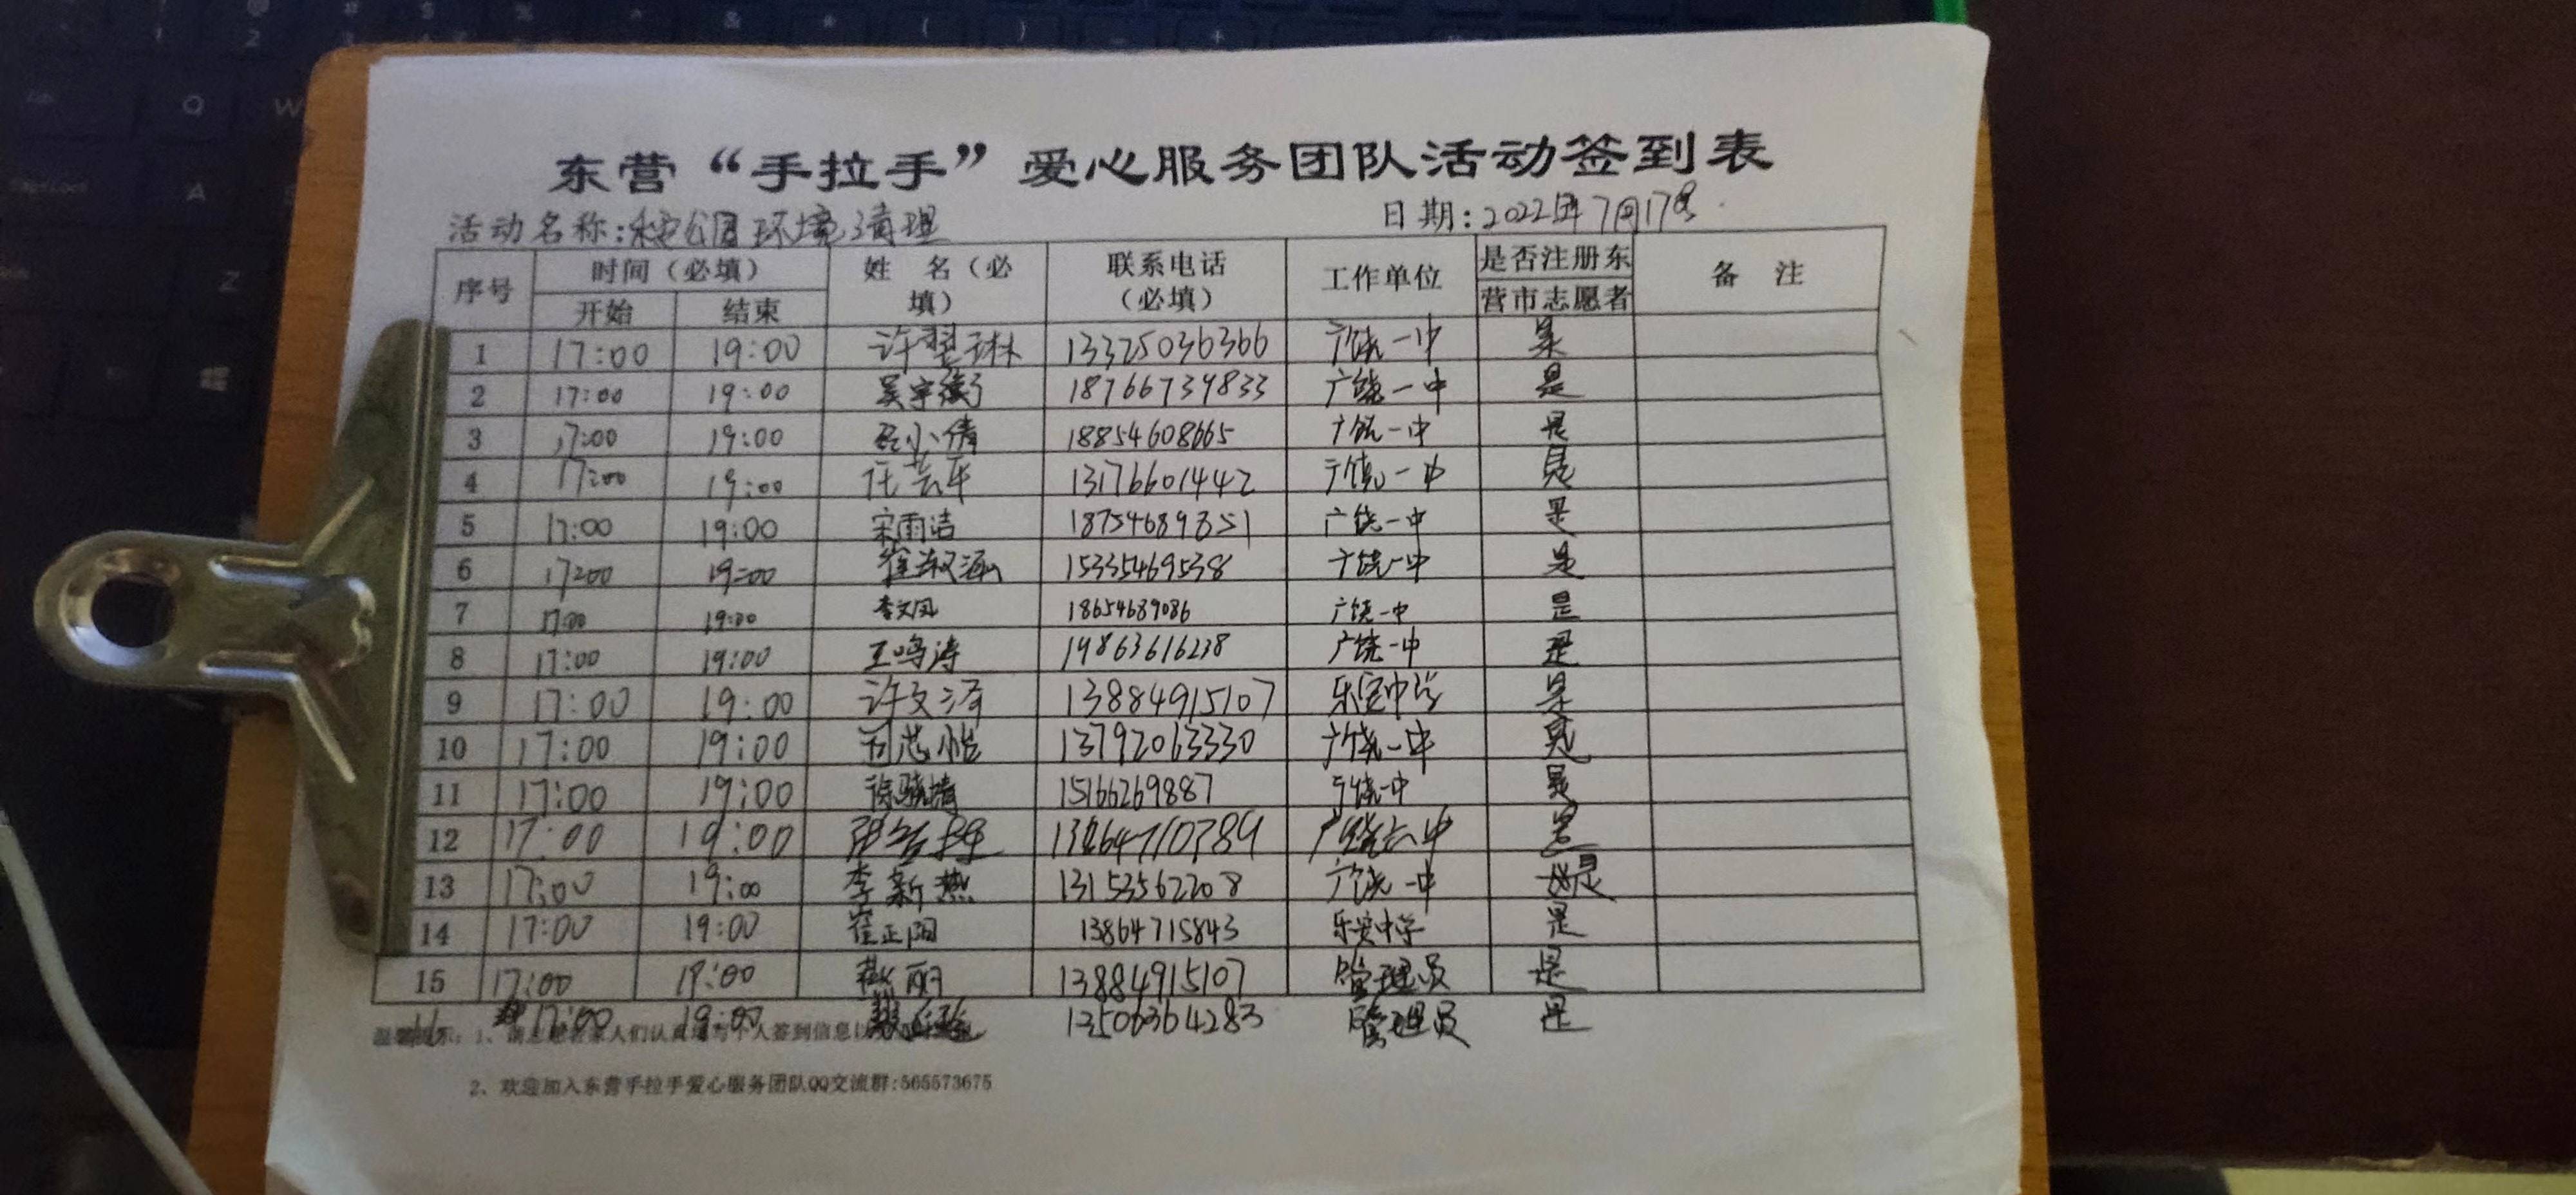 东营“手拉手”爱心服务团队活动签到表
活动名称: 公园环境清理 日期: 2022年7月17号
序号 时间（必填） 姓 名（必填） 联系电话（必填） 工作单位 是否注册东营市志愿者 备 注
开始 结束
1 17:00 19:00 许翌琳 13325036366 广饶一中 是
2 17:00 19:00 吴宇 18766739833 广饶一中 是
3 17:00 19:00 小倩 18854608665 广饶一中 是
4 17:00 19:00 任 军 13176601442 广饶一中 是
5 17:00 19:00 宋雨洁 18754689351 广饶一中 是
6 17:00 19:00 崔淑涵 15335469538 广饶一中 是
7 17:00 19:00 李文凤 18654689086 广饶一中 是
8 17:00 19:00 王鸣涛 19863616238 广饶一中 是
9 17:00 19:00 许文泽 13884915107 乐安中学 是
10 17:00 19:00 芯怡 13792063330 广饶一中 是
11 17:00 19:00 徐晓婧 15166269887 广饶一中 是
12 17:00 19:00 广饶六中 是
13 17:00 19:00 李新燕 13153562208 广饶一中 是
14 17:00 19:00 崔正阳 13864715843 乐安中学 是
15 17:00 19:00 燕丽 13884915107 管理员 是
16 17:00 19:00 13506364283 管理员 是
温馨提示: 1、请志愿者家人们认真填写个人签到信息以
2、欢迎加入东营手拉手爱心服务团队QQ交流群:565573675